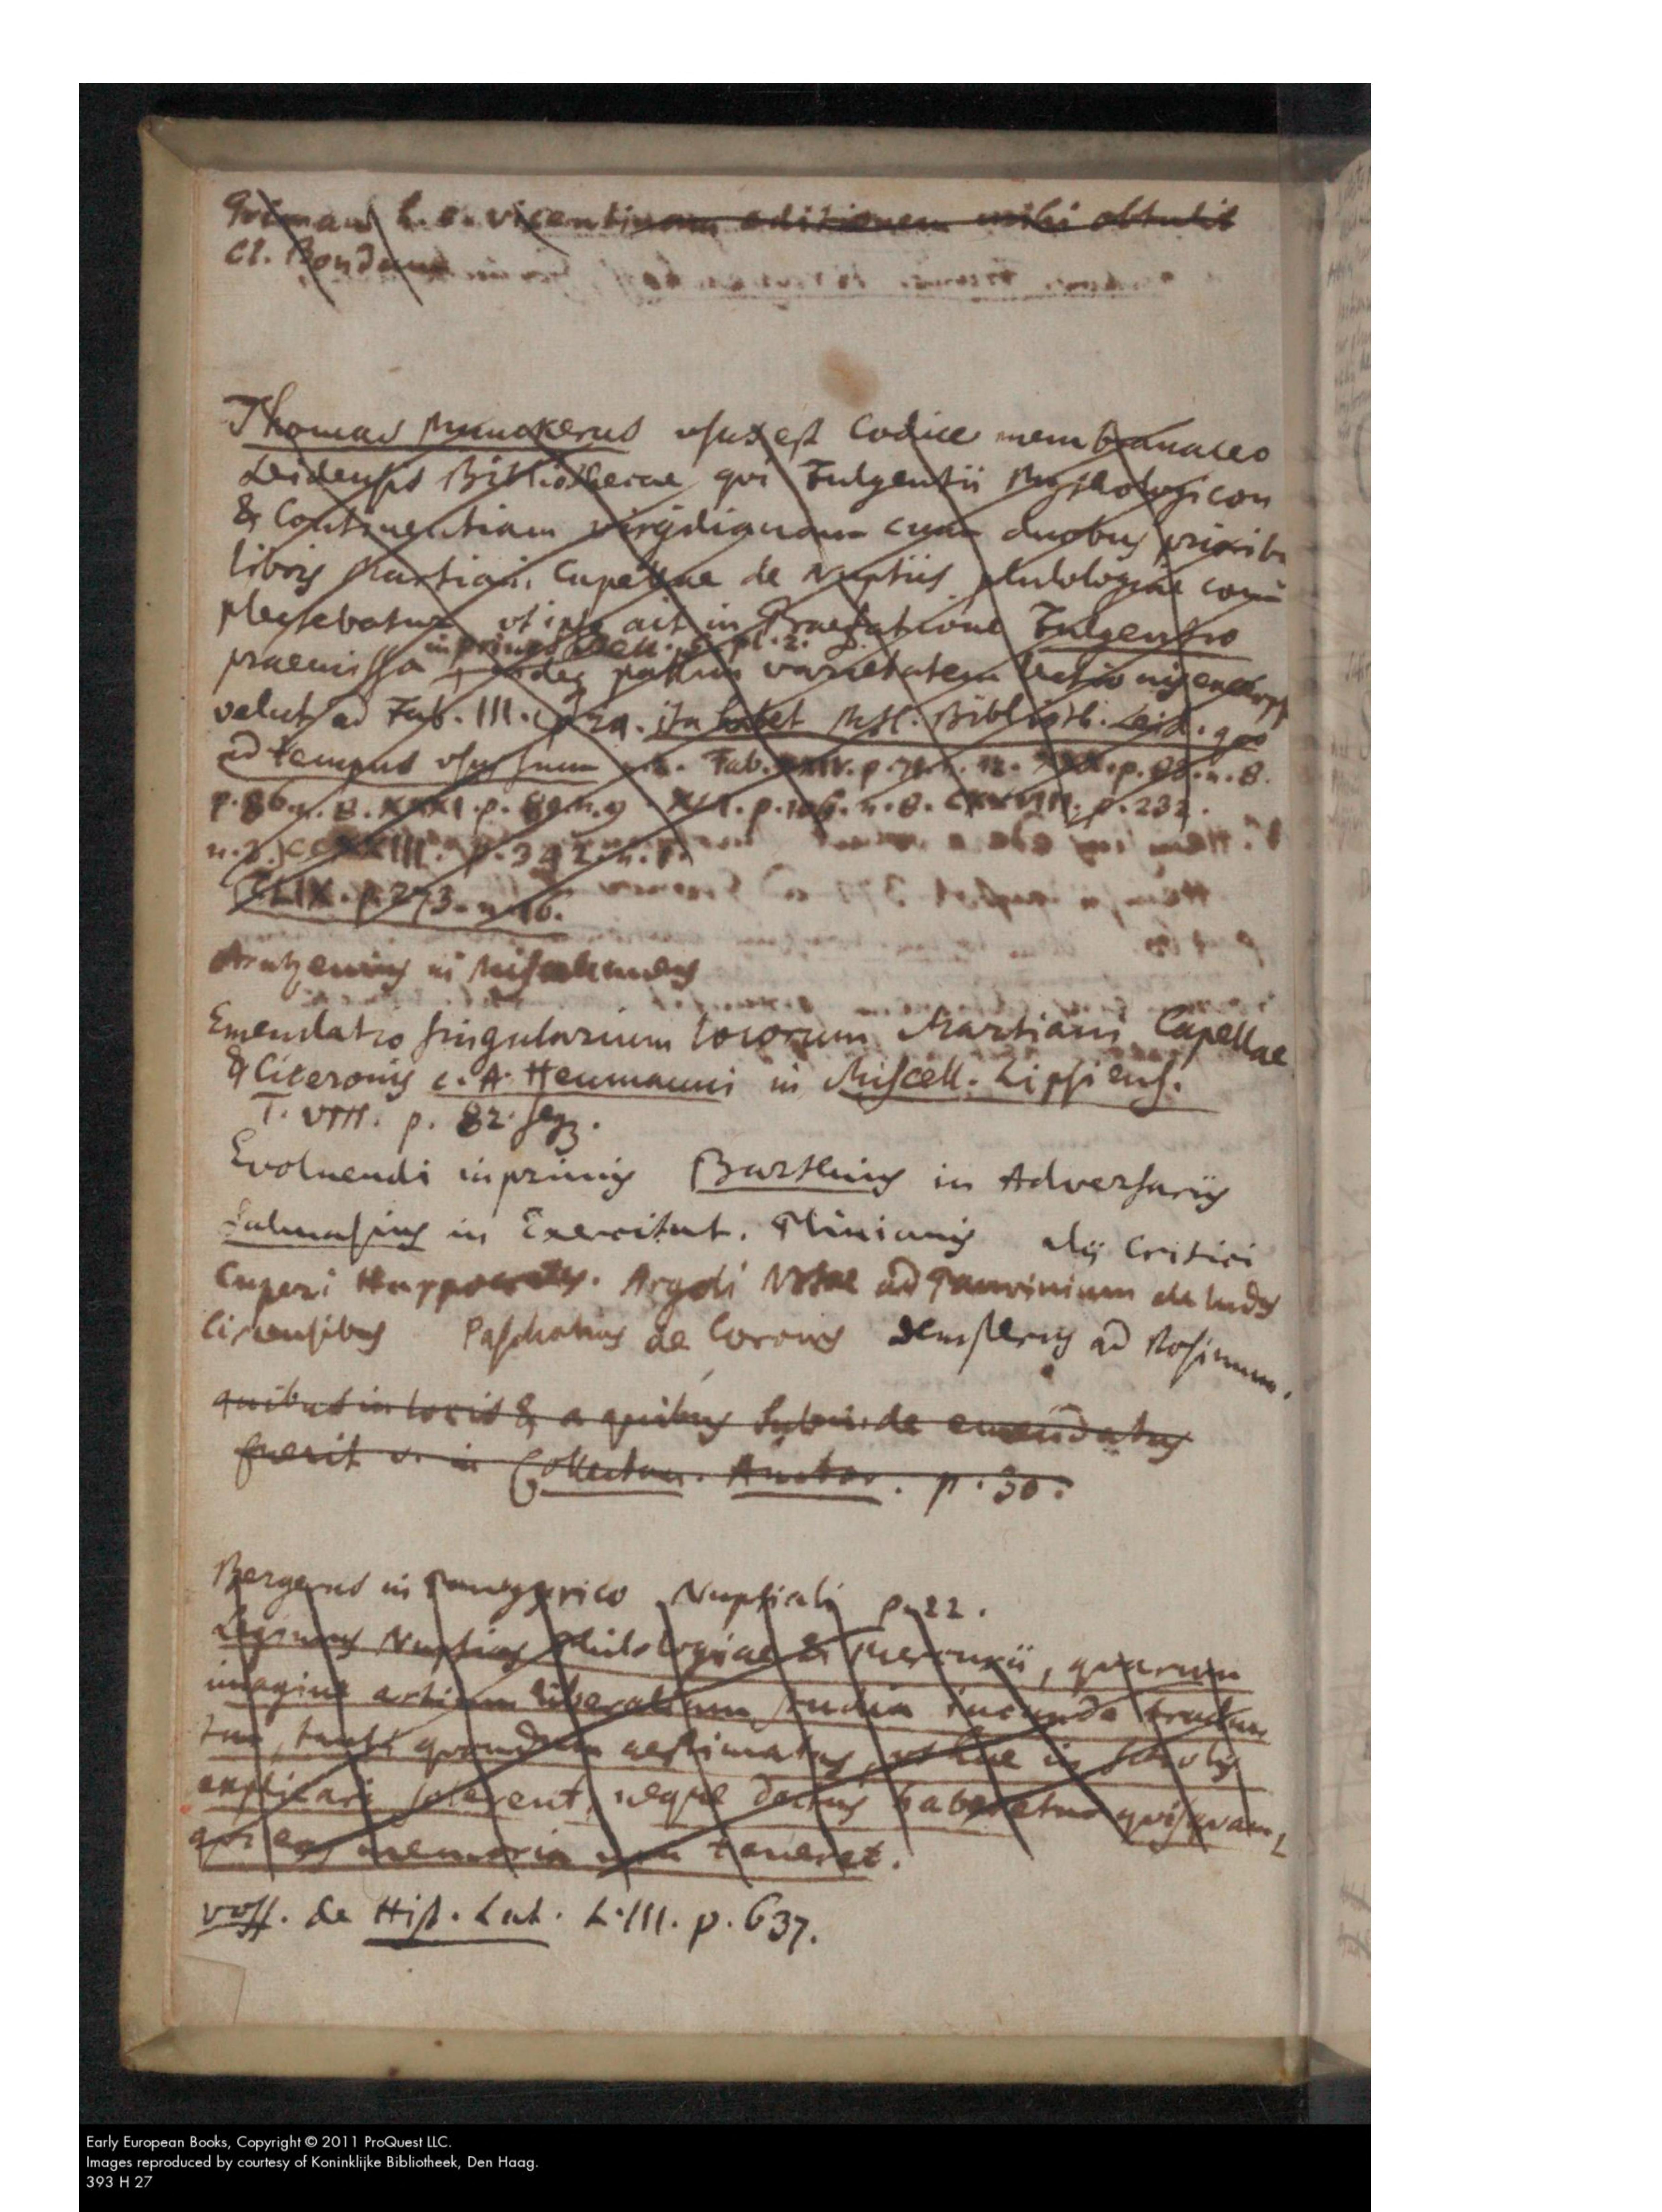 Primam h. e. vicentinam editionem mihi obtulit
Cl. Bondam
Thomas Munckerus usus est Codice membranaceo
Leidensis Bibliothecae qui Fulgentii Mythologicon
& Continentiam virgilianam cum duobus priorib
libris Martiani Capellae de Nuptiis philologiae com
plectebatur ut ipse ait in Praefatione Fulgentio
inprimis
praemissa passim varietatem lectionis
velut ad Fab. III. ita habet Mss. Biblioth. Leid. quo
ad tempus usus sum Fab. XXIV. p. n. 12. XXX. p. n. 8.
p. 86. n. 8. XXXI. p. 89. n. 9. XLI. p. 106. n. 8. p. 232.
n. 3. p. 342. n.
CLIX. p. 273. n. 16.
Arntzenius in Miscellaneis
Emendatio singularium locorum Martiani Capellae
& Ciceronis C. A. Heumanni in Miscell. Lipsiens.
T. VIII. p. 82. seqq.
Evoluendi inprimis Barthius in Adversariis
Salmasius in Exercitat. Plinianis alii Critici
Cuperi Harpocrates. Argoli Notae ad Panvinium de ludis
Circensibus Paschalius de Coronis Dempsterus ad Rosinum.
quibus in locis & a quibus subinde emendatus
fuerit v. in Collectan. Auctor. p. 30.
Bergerus in Panegyrico Nuptiali p. 22.
Legimus Nuptias Philologiae & Mercurii, quarum
imagine artium liberalium studia iucunde tradun
tur, tanti quondam aestimatas, ut hae in scholis
explicari solerent, neque doctus haberetur quisquam,
qui eas memoria non teneret.
Voss. de Hist. Lat. L. III. p. 637.
Early European Books, Copyright © 2011 ProQuest LLC.
Images reproduced by courtesy of Koninklijke Bibliotheek, Den Haag.
393 H 27